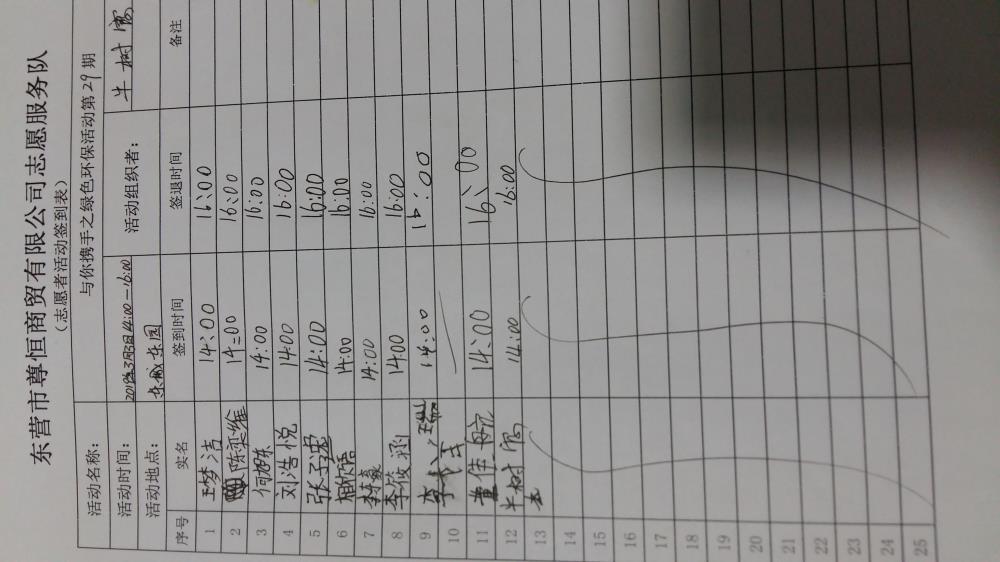 东营市尊恒商贸有限公司志愿服务队
（志愿者活动签到表）
活动名称： 与你携手之绿色环保活动第29期
活动时间： 14:00-16:00 活动组织者： 牛树
活动地点： 东城
序号 实名 签到时间 签退时间 备注
1 王梦洁 14:00 16:00
2 陈奕维 14:00 16:00
3 何 14:00 16:00
4 刘浩悦 14:00 16:00
5 张子 14:00 16:00
6 14:00 16:00
7 14:00 16:00
8 李筱涵 14:00 16:00
9 李 14:00 16:00
10
11 董佳航 14:00 16:00
12 牛树 14:00 16:00
13
14
15
16
17
18
19
20
21
22
23
24
25